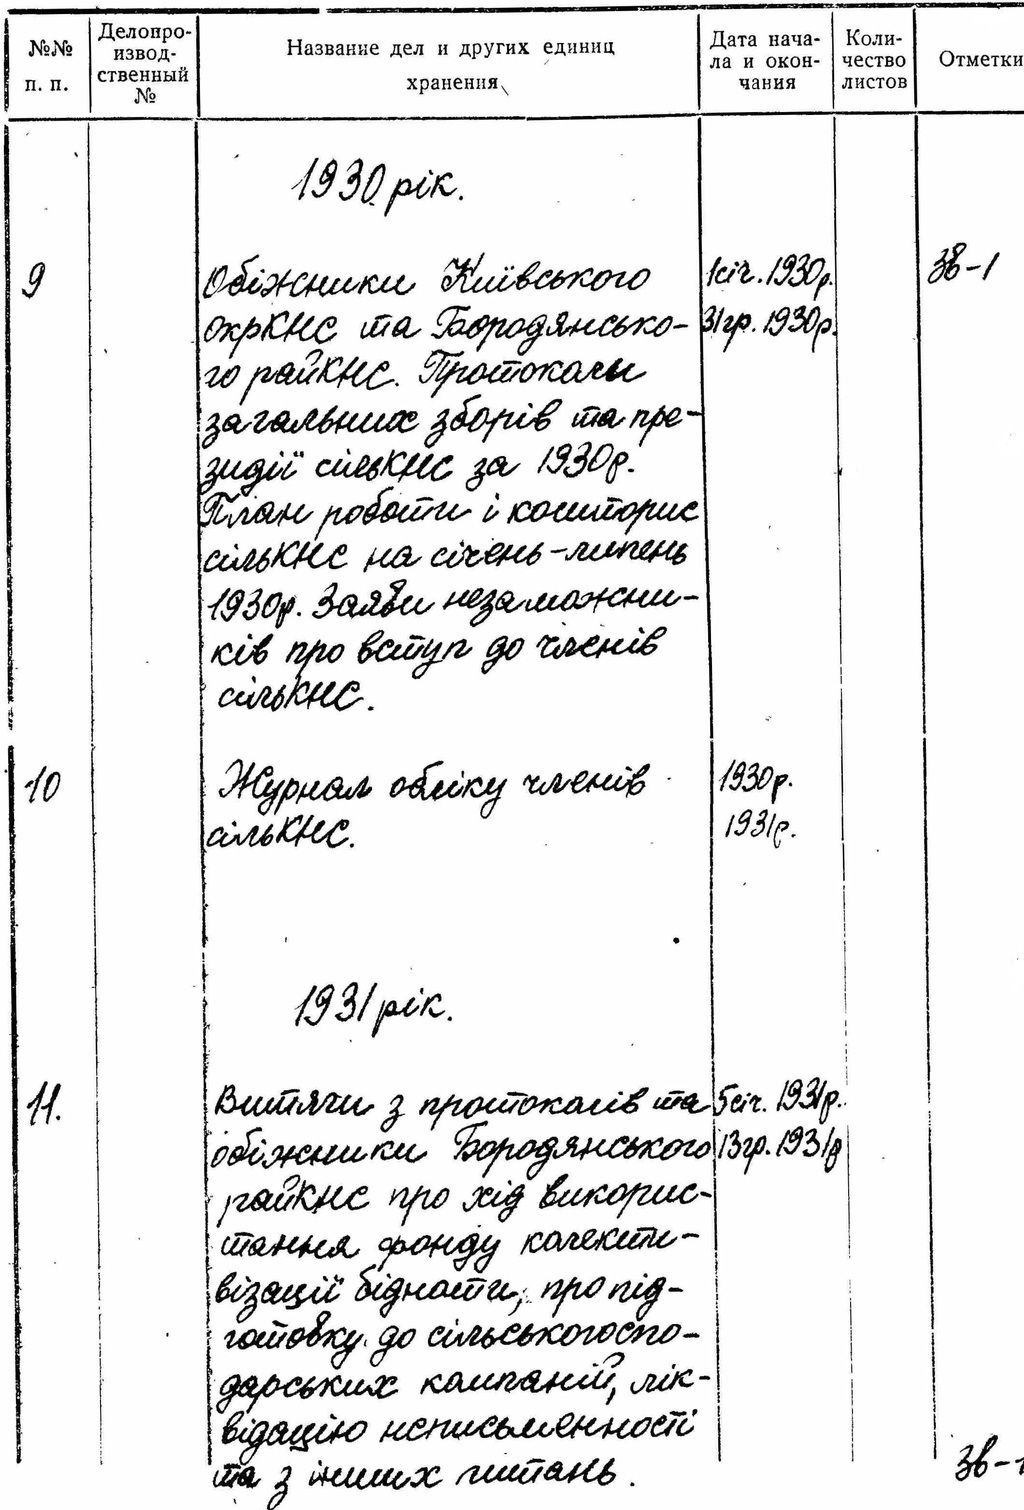 №№ п. п.
Делопро-
извод-
ственный
№
Название дел и других единиц
хранения
Дата нача-
ла и окон-
чания
Коли-
чество
листов
Отметки
1930 рік.
9
Обіжники Київського
окрКНС та Бородянсько-
го райКНС. Протоколи
загальних зборів та пре-
зидії сільКНС за 1930р.
План роботи і кошторис
сільКНС на січень-липень
1930р. Заяви незаможни-
ків про вступ до членів
сільКНС.
1 січ. 1930р.
31 гр. 1930р.
зв-1
10
Журнал обліку членів
сільКНС.
1930р.
1931р.
1931 рік.
11.
Витяги з протоколів та
обіжники Бородянського
райКНС про хід викорис-
тання фонду колекти-
візації бідноти, про під-
готовку до сільськогоспо-
дарських кампаній, лік-
відацію неписьменності
та з інших питань.
5 січ. 1931р.
13 гр. 1931р
зв-1